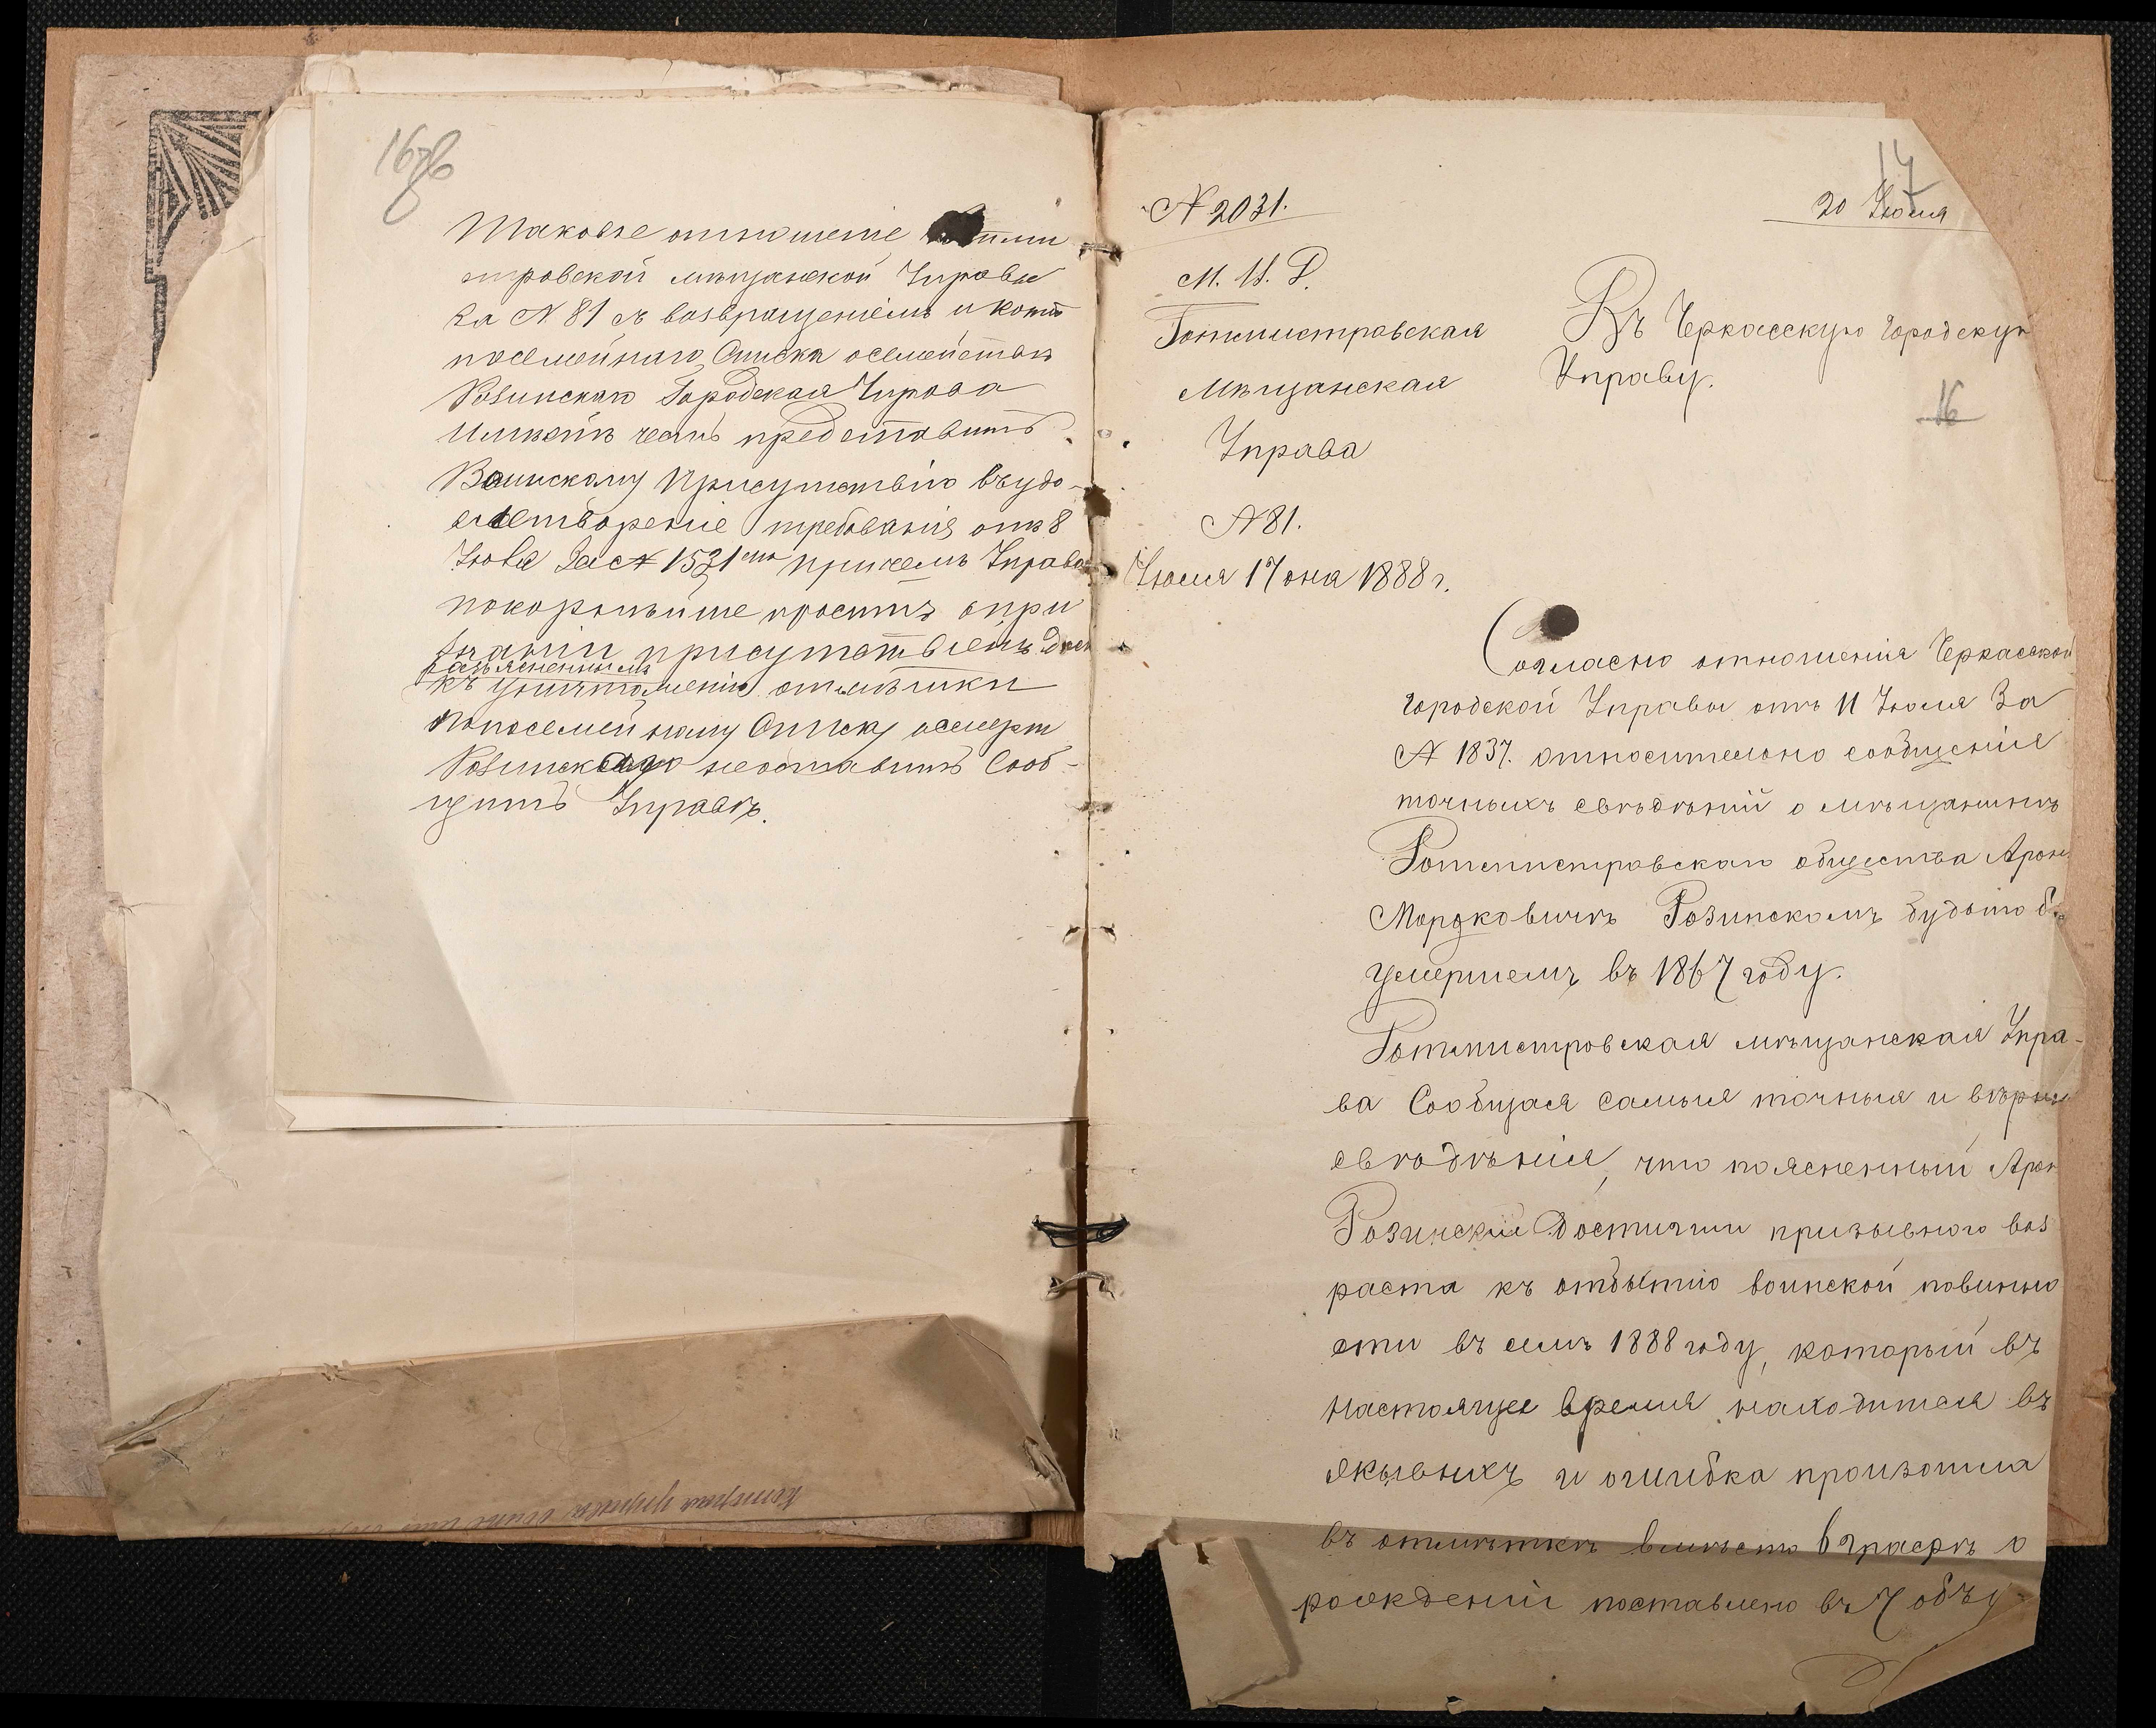 16об
Таковое отношение Ротми
стровской мѣщанской Управы
за N 81 съ возвращеніемъ и копіи
посемейнаго Списка о семействѣ
Розинскаго Городская Управа
имѣетъ честь представить
Воинскому Присутствію въ удо-
влетвореніе требованія отъ 8
Іюля за N 1521 причемъ Управа
покорнѣйше проситъ о при
знаніи присутствіемъ
разъясненныхъ
къ уничтоженію отмѣтки
по посемейному Списку о смерти
Розинскаго неоставить Сооб-
щить Управѣ.
17
N 2031.
20 Іюля
М. В. Д.
Ротмистровская
Мѣщанская
Управа
N 81.
Іюля 17 дня 1888 г.
Въ Черкасскую городскую
Управу.
16
Согласно отношенія Черкасской
городской Управы отъ 11 Іюля За
N 1837. относительно сообщенія
точныхъ свѣдѣній о мѣщанинѣ
Ротмистровскаго общества Аронѣ
Мордковичѣ Розинскомъ будьто бы
умершемъ въ 1867 году.
Ротмистровская мѣщанская Упра-
ва Сообщая самыя точныя и вѣрныя
свѣдѣнія, что поясненный Арон
Розинскій достигши призывного воз
раста къ отбытію воинской повинно
сти въ семъ 1888 году, который въ
настоящее время находится въ
живыхъ и ошибка произошла
въ отмѣткѣ вмѣсто въ графѣ о
рожденіи поставлено въ 7 объ у-